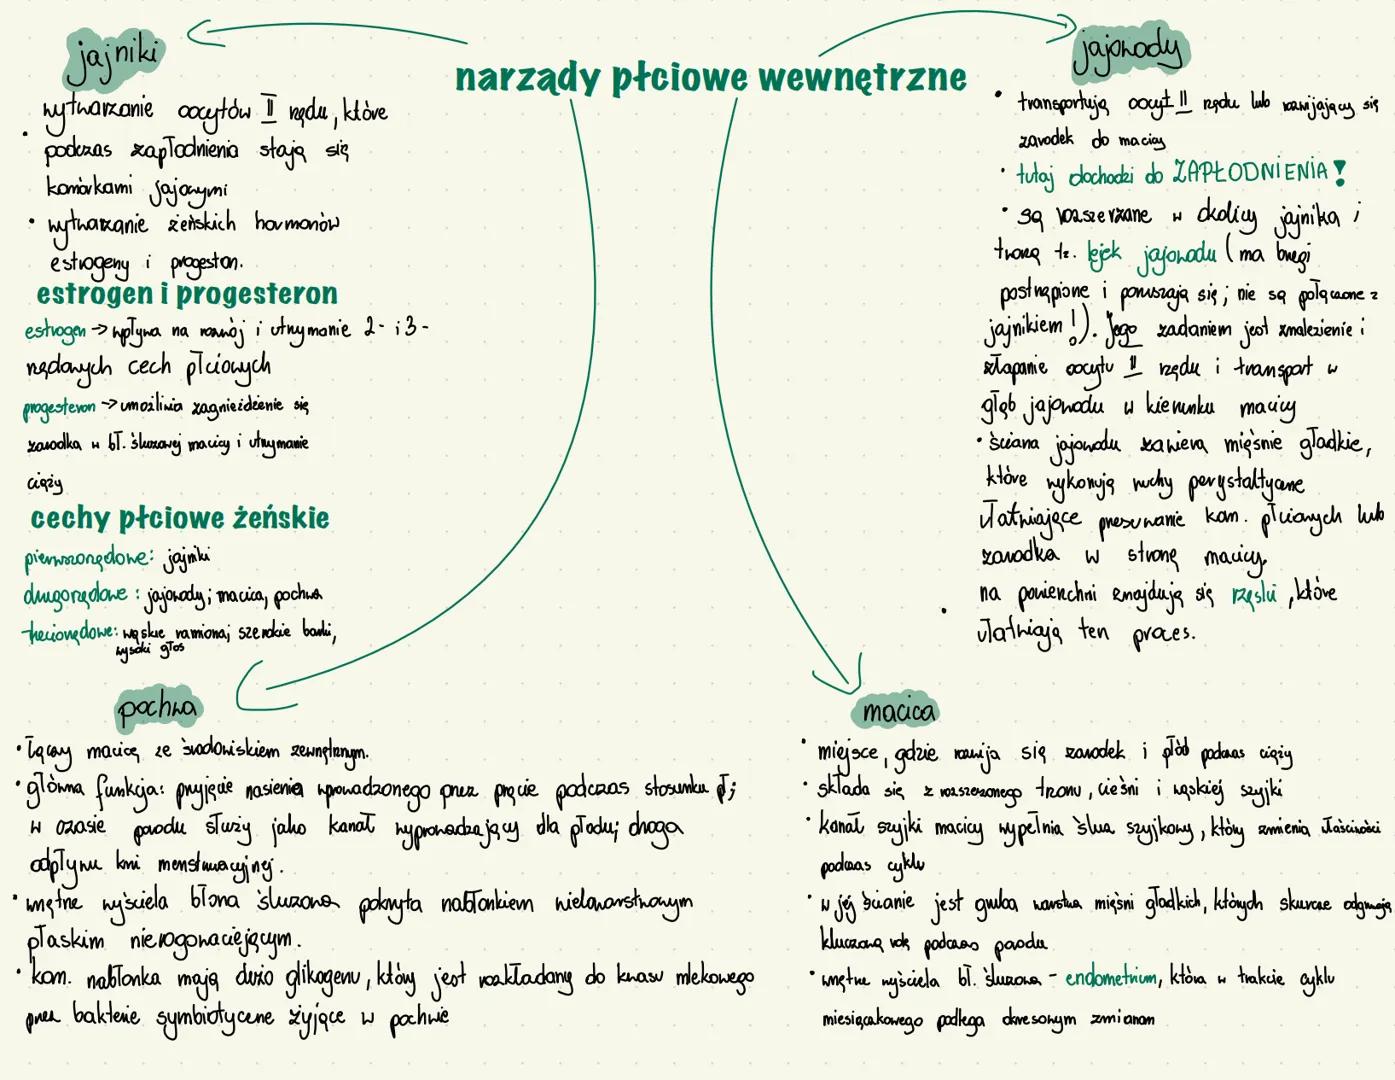 narządy płciowe wewnętrzne
jajniki
wytwarzanie oocytów II rzędu, które
podczas zapłodnienia stają się
komórkami jajowymi
• wytwarzanie żeńskich hormonów
estrogeny i progeston.
estrogen i progesteron
estrogen → wpływa na rozwój i utrzymanie 2- i 3-
rzędowych cech płciowych
progesteron → umożliwia zagnieżdżenie się
zarodka w bł. śluzowej macicy i utrzymanie
ciąży
cechy płciowe żeńskie
pierwszorzędowe: jajniki
drugorzędowe: jajowody; macica, pochwa
trzeciorzędowe: wąskie ramiona; szerokie barki,
wysoki głos
jajowody
• transportują oocyt II rzędu lub rozwijający się
zarodek do macicy
• tutaj dochodzi do ZAPŁODNIENIA!
• są rozszerzane w okolicy jajnika i
tworzą tz. lejek jajowodu (ma brzegi
postrzępione i poruszają się; nie są połączone z
jajnikiem!). Jego zadaniem jest znalezienie i
złapanie oocytu II rzędu i transport w
głąb jajowodu w kierunku macicy
• ściana jajowodu zawiera mięśnie gładkie,
które wykonują ruchy perystaltyczne
ułatwiające przesuwanie kom. płciowych lub
zarodka w stronę macicy.
na powierzchni znajdują się rzęski, które
ułatwiają ten proces.
pochwa
• łączy macicę ze środowiskiem zewnętrznym.
• główna funkcja: przyjęcie nasienia wprowadzonego przez prącie podczas stosunku pł;
w czasie porodu służy jako kanał wyprowadzający dla płodu; droga
odpływu krwi menstruacyjnej.
• wnętrze wyściela błona śluzowa pokryta nabłonkiem wielowarstwowym
płaskim nierogowaciejącym.
• kom. nabłonka mają dużo glikogenu, który jest rozkładany do kwasu mlekowego
przez bakterie symbiotyczne żyjące w pochwie
macica
• miejsce, gdzie rozwija się zarodek i płód podczas ciąży
• składa się z rozszerzonego trzonu, cieśni i wąskiej szyjki
• kanał szyjki macicy wypełnia śluz szyjkowy, który zmienia właściwości
podczas cyklu
• w jej ścianie jest gruba warstwa mięśni gładkich, których skurcze odgrywają
kluczową rolę podczas porodu
• wnętrze wyściela bł. śluzowa - endometrium, która w trakcie cyklu
miesiączkowego podlega okresowym zmianom